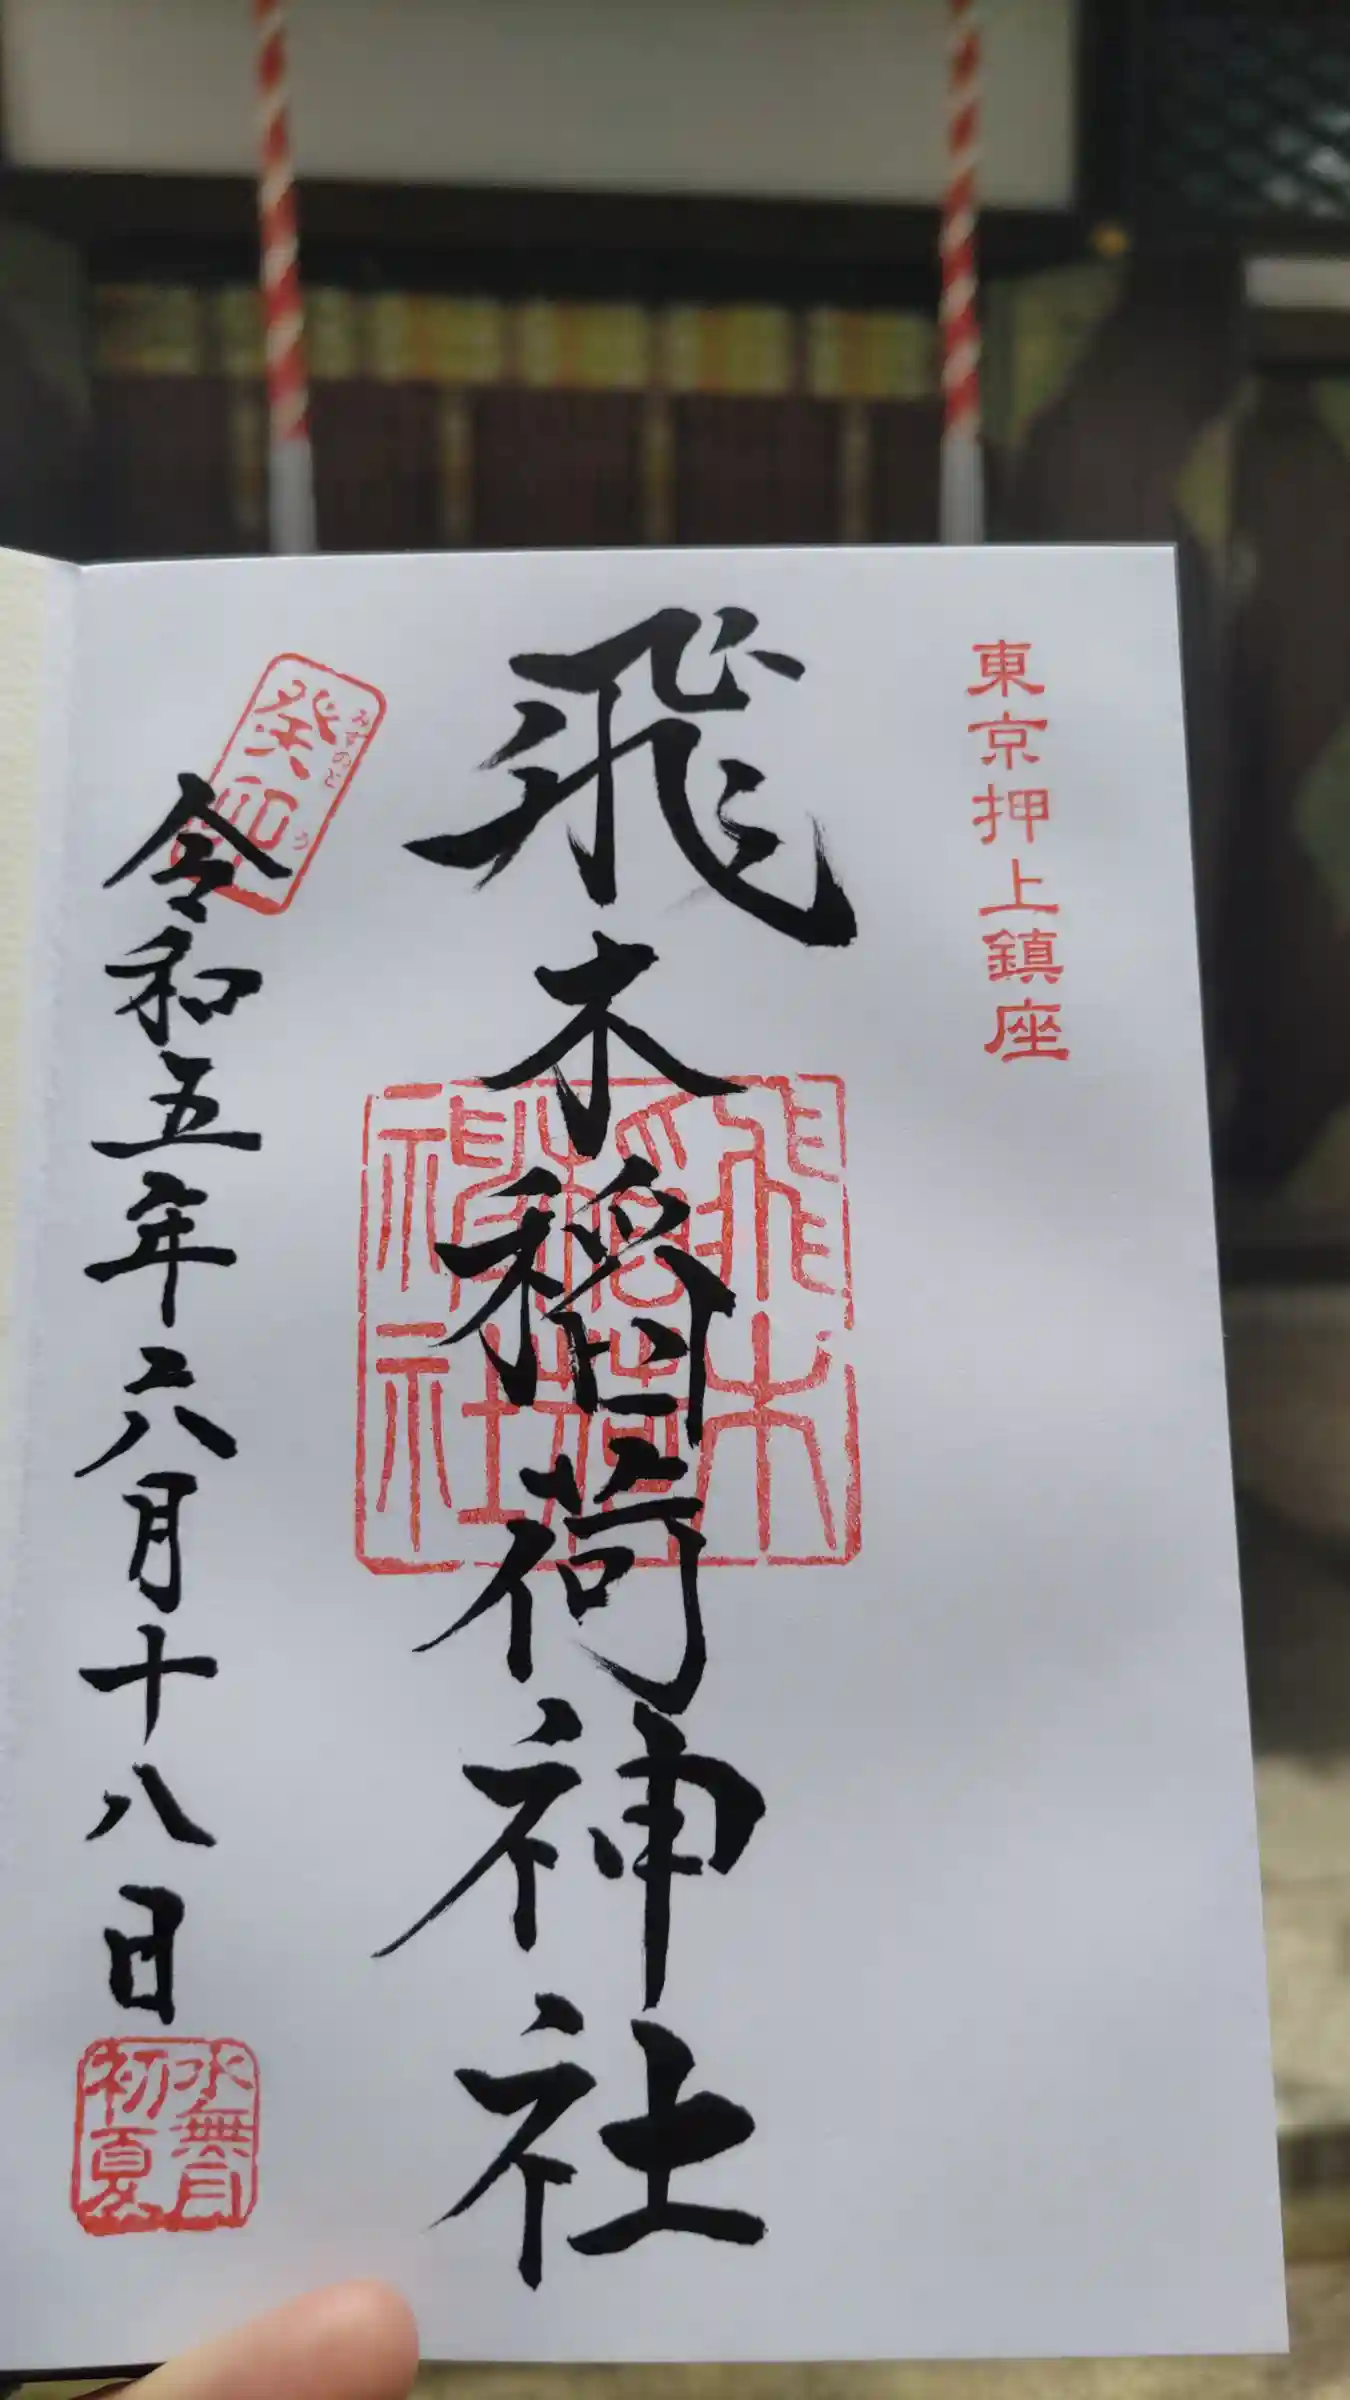 東京押上鎮座
飛木稲荷神社
飛木
稲荷
神社
癸卯
みずのと う
令和五年六月十八日
水無月
初夏